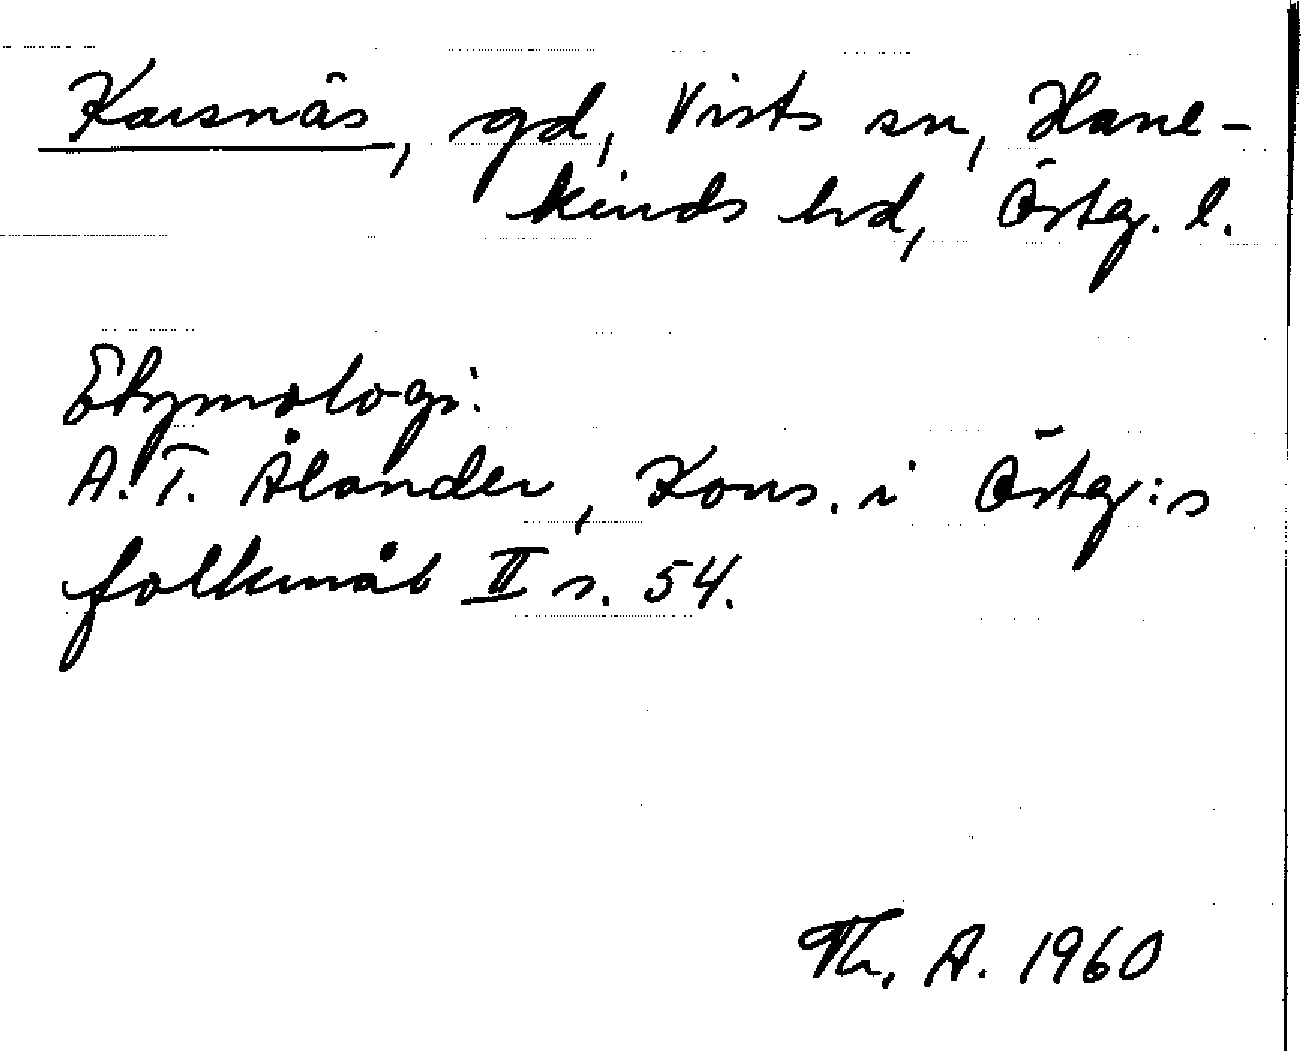 Karsnäs, gd, Vists sn, Hane-
kinds hd, Östg. l.
Etymologi:
A.T. Ålander, Kons. i Östg:s
folkmål II s. 54.
Th. A. 1960